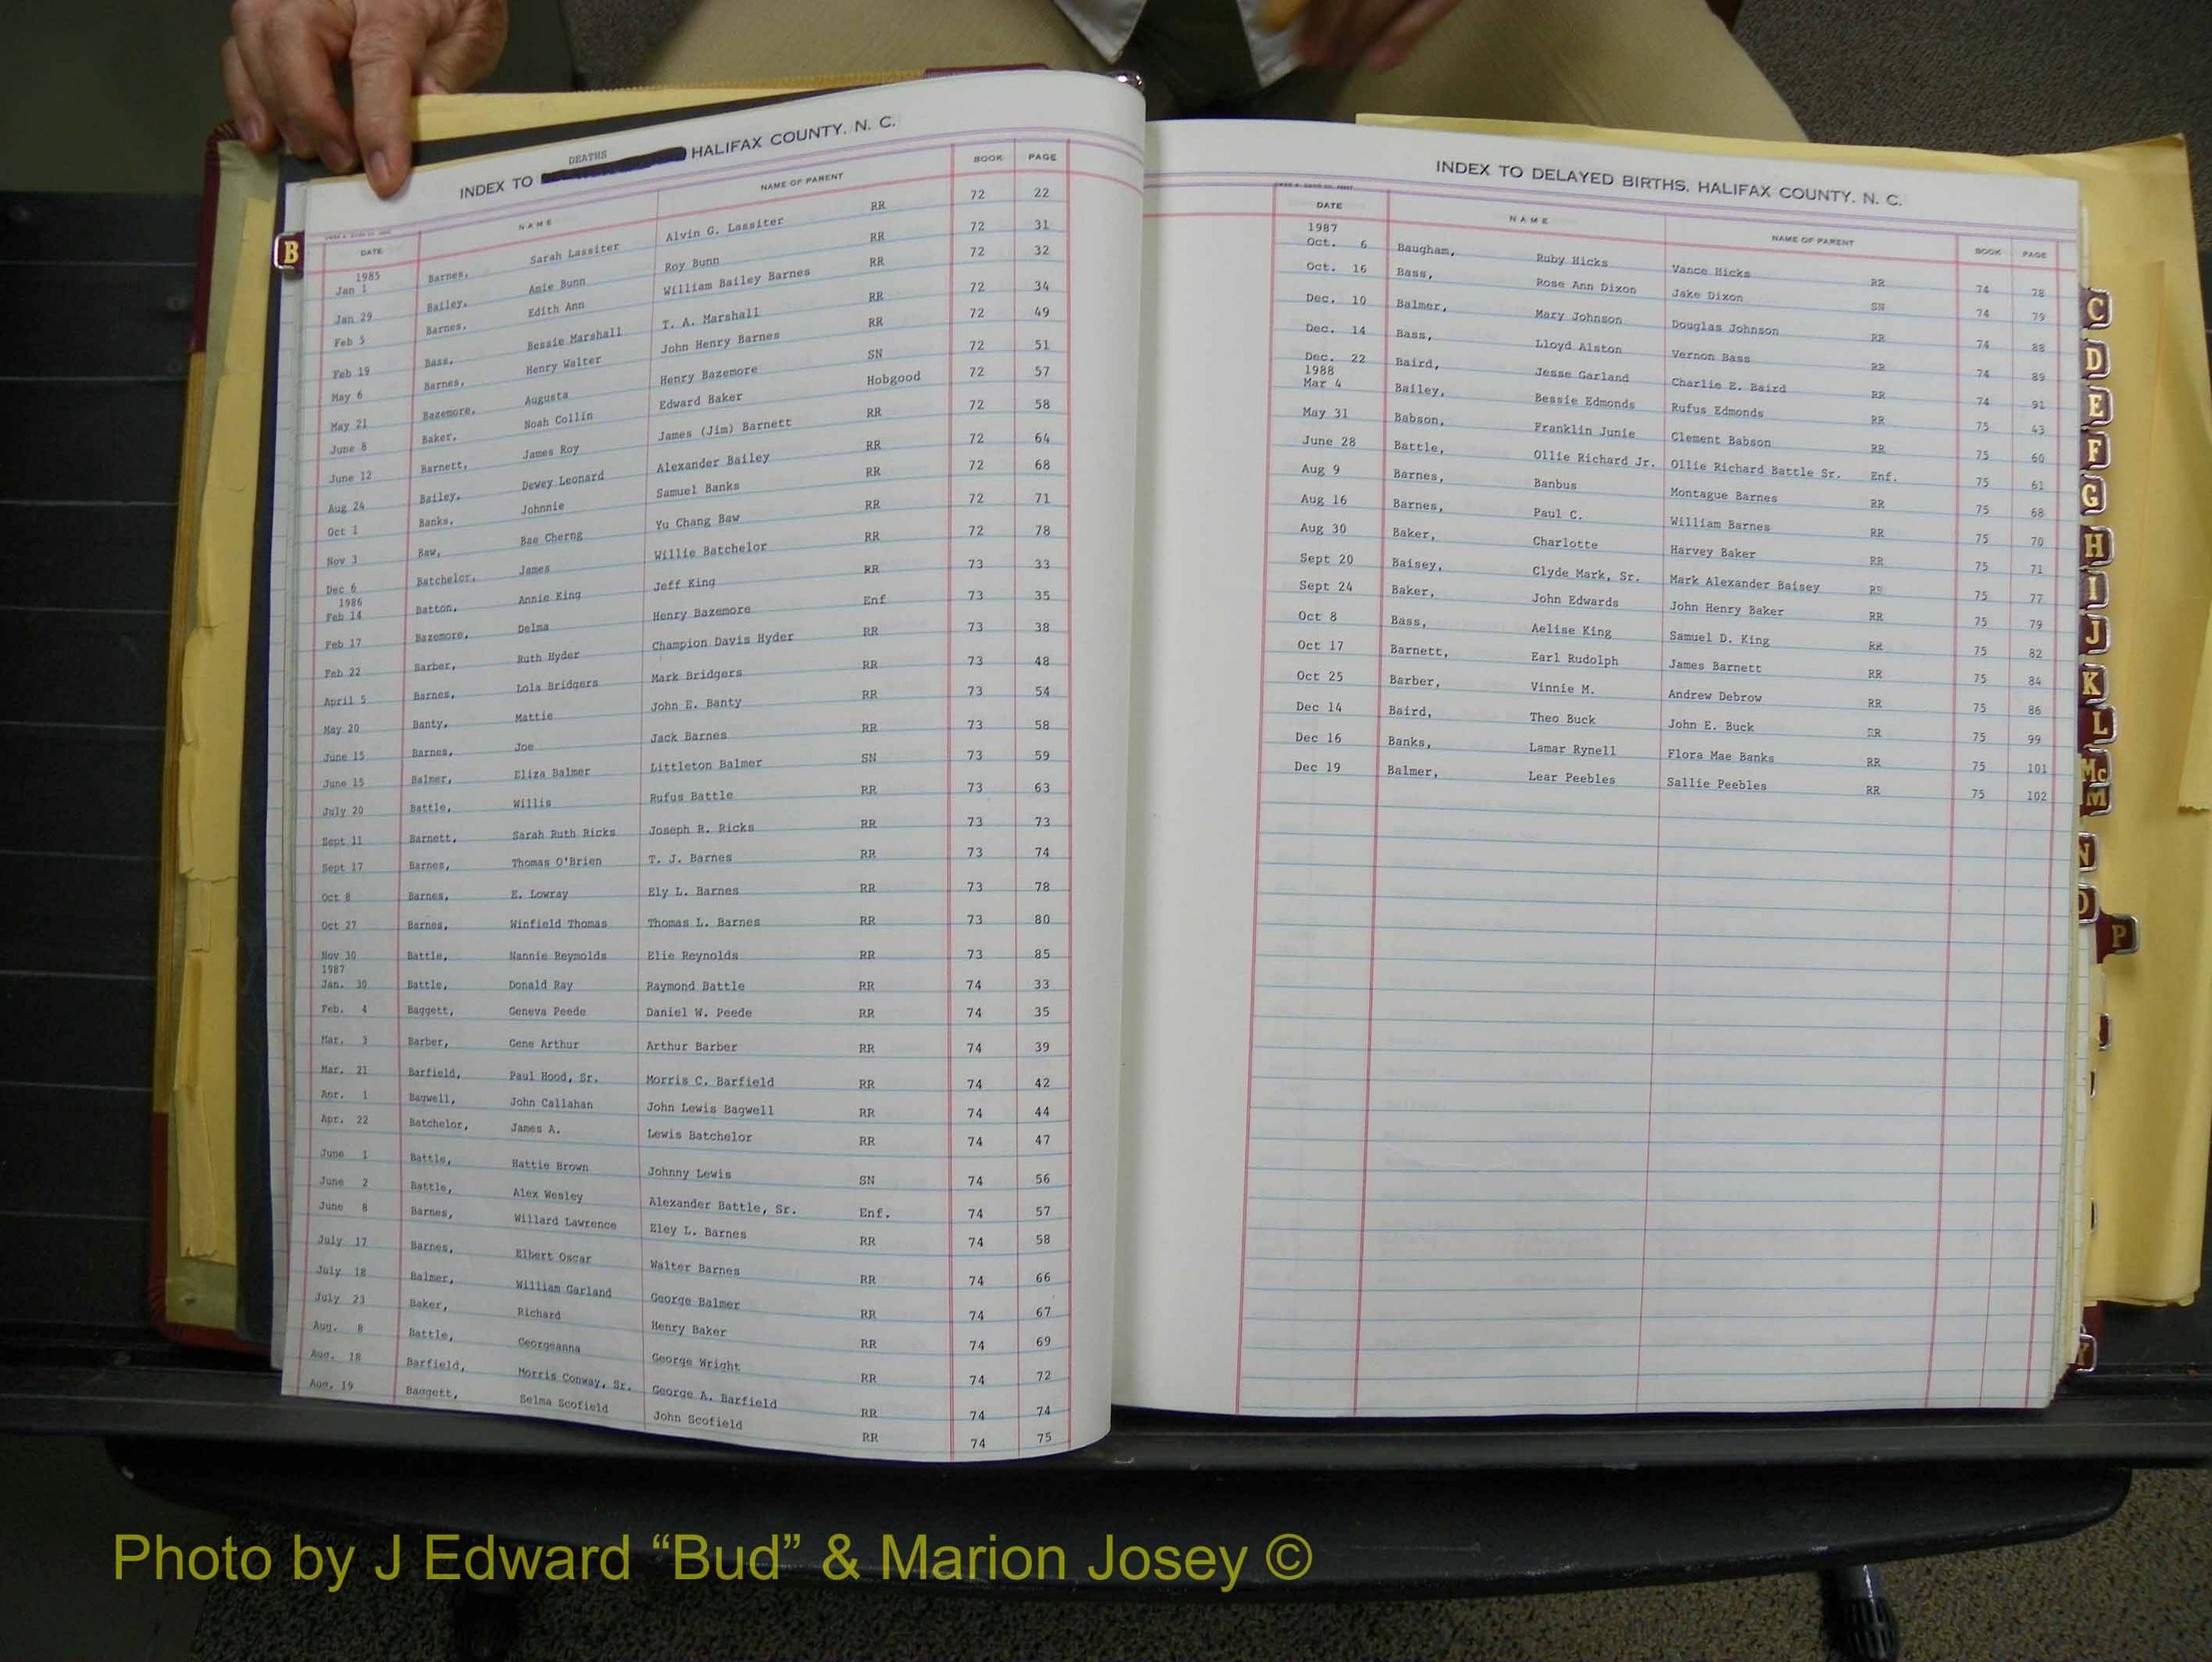 DEATHS
INDEX TO HALIFAX COUNTY, N. C.
DATE NAME NAME OF PARENT BOOK PAGE
B
1985
Jan 1 Barnes, Sarah Lassiter Alvin G. Lassiter RR 72 22
Jan 29 Bailey, Amie Bunn Roy Bunn RR 72 31
Feb 5 Barnes, Edith Ann William Bailey Barnes RR 72 32
Feb 19 Bass, Bessie Marshall T. A. Marshall RR 72 34
May 6 Barnes, Henry Walter John Henry Barnes RR 72 49
May 21 Bazemore, Augusta Henry Bazemore SN 72 51
June 8 Baker, Noah Collin Edward Baker Hobgood 72 57
June 12 Barnett, James Roy James (Jim) Barnett RR 72 58
Aug 24 Bailey, Dewey Leonard Alexander Bailey RR 72 64
Oct 1 Banks, Johnnie Samuel Banks RR 72 68
Nov 3 Baw, Bae Cherng Yu Chang Baw RR 72 71
Dec 6 Batchelor, James Willie Batchelor RR 72 78
1986
Feb 14 Batton, Annie King Jeff King RR 73 33
Feb 17 Bazemore, Delma Henry Bazemore Enf 73 35
Feb 22 Barber, Ruth Hyder Champion Davis Hyder RR 73 38
April 5 Barnes, Lola Bridgers Mark Bridgers RR 73 48
May 20 Banty, Mattie John E. Banty RR 73 54
June 15 Barnes, Joe Jack Barnes RR 73 58
June 15 Balmer, Eliza Balmer Littleton Balmer SN 73 59
July 20 Battle, Willis Rufus Battle RR 73 63
Sept 11 Barnett, Sarah Ruth Ricks Joseph R. Ricks RR 73 73
Sept 17 Barnes, Thomas O'Brien T. J. Barnes RR 73 74
Oct 8 Barnes, E. Lowray Ely L. Barnes RR 73 78
Oct 27 Barnes, Winfield Thomas Thomas L. Barnes RR 73 80
Nov 30 Battle, Nannie Reynolds Elie Reynolds RR 73 85
1987
Jan. 30 Battle, Donald Ray Raymond Battle RR 74 33
Feb. 4 Baggett, Geneva Peede Daniel W. Peede RR 74 35
Mar. 3 Barber, Gene Arthur Arthur Barber RR 74 39
Mar. 21 Barfield, Paul Hood, Sr. Morris C. Barfield RR 74 42
Apr. 1 Bagwell, John Callahan John Lewis Bagwell RR 74 44
Apr. 22 Batchelor, James A. Lewis Batchelor RR 74 47
June 1 Battle, Hattie Brown Johnny Lewis SN 74 56
June 2 Battle, Alex Wesley Alexander Battle, Sr. Enf. 74 57
June 8 Barnes, Willard Lawrence Eley L. Barnes RR 74 58
July 17 Barnes, Elbert Oscar Walter Barnes RR 74 66
July 18 Balmer, William Garland George Balmer RR 74 67
July 23 Baker, Richard Henry Baker RR 74 69
Aug. 8 Battle, Georgeanna George Wright RR 74 72
Aug. 18 Barfield, Morris Conway, Sr. George A. Barfield RR 74 74
Aug. 19 Baggett, Selma Scofield John Scofield RR 74 75
INDEX TO DELAYED BIRTHS, HALIFAX COUNTY, N. C.
DATE NAME NAME OF PARENT BOOK PAGE
1987
Oct. 6 Baugham, Ruby Hicks Vance Hicks RR 74 78
Oct. 16 Bass, Rose Ann Dixon Jake Dixon SN 74 79
Dec. 10 Balmer, Mary Johnson Douglas Johnson RR 74 88
Dec. 14 Bass, Lloyd Alston Vernon Bass RR 74 89
Dec. 22 Baird, Jesse Garland Charlie E. Baird RR 74 91
1988
Mar 4 Bailey, Bessie Edmonds Rufus Edmonds RR 75 43
May 31 Babson, Franklin Junie Clement Babson RR 75 60
June 28 Battle, Ollie Richard Jr. Ollie Richard Battle Sr. Enf. 75 61
Aug 9 Barnes, Banbus Montague Barnes RR 75 68
Aug 16 Barnes, Paul C. William Barnes RR 75 70
Aug 30 Baker, Charlotte Harvey Baker RR 75 71
Sept 20 Baisey, Clyde Mark, Sr. Mark Alexander Baisey RR 75 77
Sept 24 Baker, John Edwards John Henry Baker RR 75 79
Oct 8 Bass, Aelise King Samuel D. King RR 75 82
Oct 17 Barnett, Earl Rudolph James Barnett RR 75 84
Oct 25 Barber, Vinnie M. Andrew Debrow RR 75 86
Dec 14 Baird, Theo Buck John E. Buck RR 75 99
Dec 16 Banks, Lamar Rynell Flora Mae Banks RR 75 101
Dec 19 Balmer, Lear Peebles Sallie Peebles RR 75 102
C
D
E
F
G
H
I
J
K
L
Mc
M
N
O
P
Y
Photo by J Edward “Bud” & Marion Josey ©